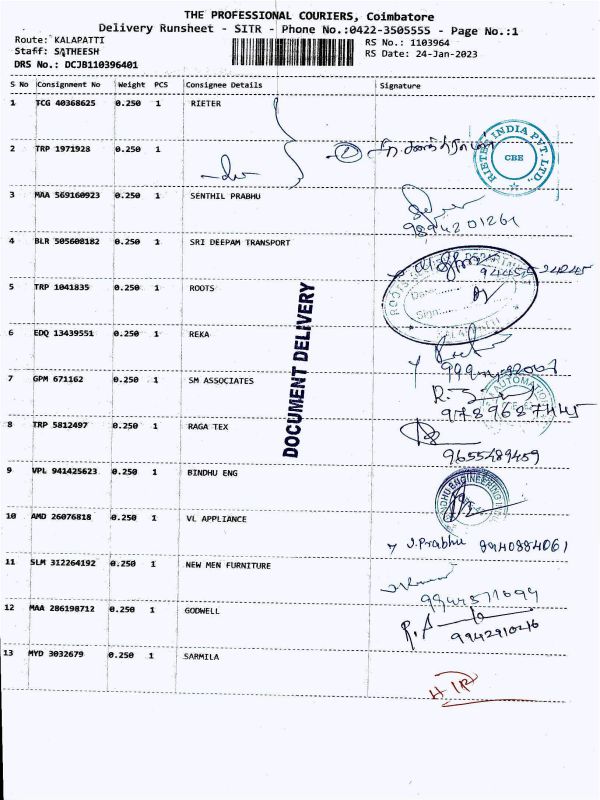 THE PROFESSIONAL COURIERS, Coimbatore
Delivery Runsheet - SITR - Phone No.:0422-3505555 - Page No.:1
Route: KALAPATTI
RS No.: 1103964
Staff: SATHEESH
RS Date: 24-Jan-2023
DRS No.: DCJB110396401
S No Consignment No Weight PCS Consignee Details Signature
1 TCG 40368625 0.250 1 RIETER
RIETER INDIA PVT. LTD., CBE
2 TRP 1971928 0.250 1
3 MAA 569160923 0.250 1 SENTHIL PRABHU
9894201261
4 BLR 505608182 0.250 1 SRI DEEPAM TRANSPORT
5 TRP 1041835 0.250 1 ROOTS
Date:
Sign:
DOCUMENT DELIVERY
6 EDQ 13439551 0.250 1 REKA
7 GPM 671162 0.250 1 SM ASSOCIATES
AUTOMATION
9789687445
8 TRP 5812497 0.250 1 RAGA TEX
9655489459
9 VPL 941425623 0.250 1 BINDHU ENG
ENGINEERING
10 AMD 26076818 0.250 1 VL APPLIANCE
J.Prabhu 9940884061
11 SLM 312264192 0.250 1 NEW MEN FURNITURE
12 MAA 286198712 0.250 1 GODWELL
R.A
9942910216
13 MYD 3032679 0.250 1 SARMILA